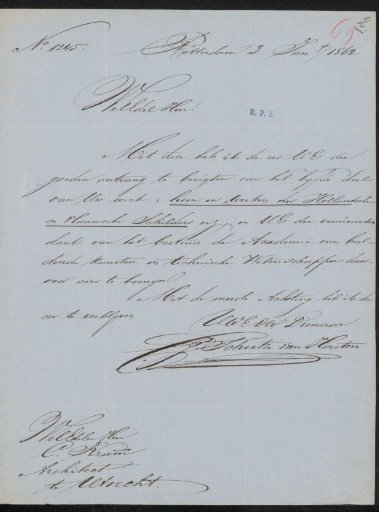 No. 1245.
Rotterdam 3 Juny 1862
WelEdel Heer!
R. P. K.
Met deze heb ik de eer U.E. den
goeden ontvang te berigten van het deel
van Uw werk: leven en werken der Hollandsche
en Vlaamsche Schilders enz. en UE den
dank van het Bestuur der Academie van beel-
dende Kunsten en technische Wetenschappen daar-
voor over te brengen.
Met de meeste Achting heb ik de
eer te verblijven
UwEdle Dienaar
van Houten
WelEdelen Heer
C. Kramm
Architect
te Utrecht